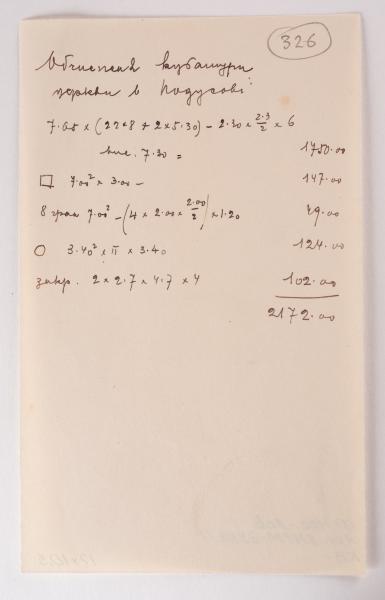 326
Обчислення кубатури
церкви в Подусові:
7.65 × (22.8 + 2×5.30) – 2.30 × 2.3/2 × 6
вис. 7.30 = 1750.00
□ 7.00² × 3.00 – 147.00
8 гран 7.00² – (4 × 2.00 × 2.00/2) × 1.20 49.00
○ 3.40² × π × 3.40 124.00
закр. 2 × 2.7 × 4.7 × 4 102.00
2172.00